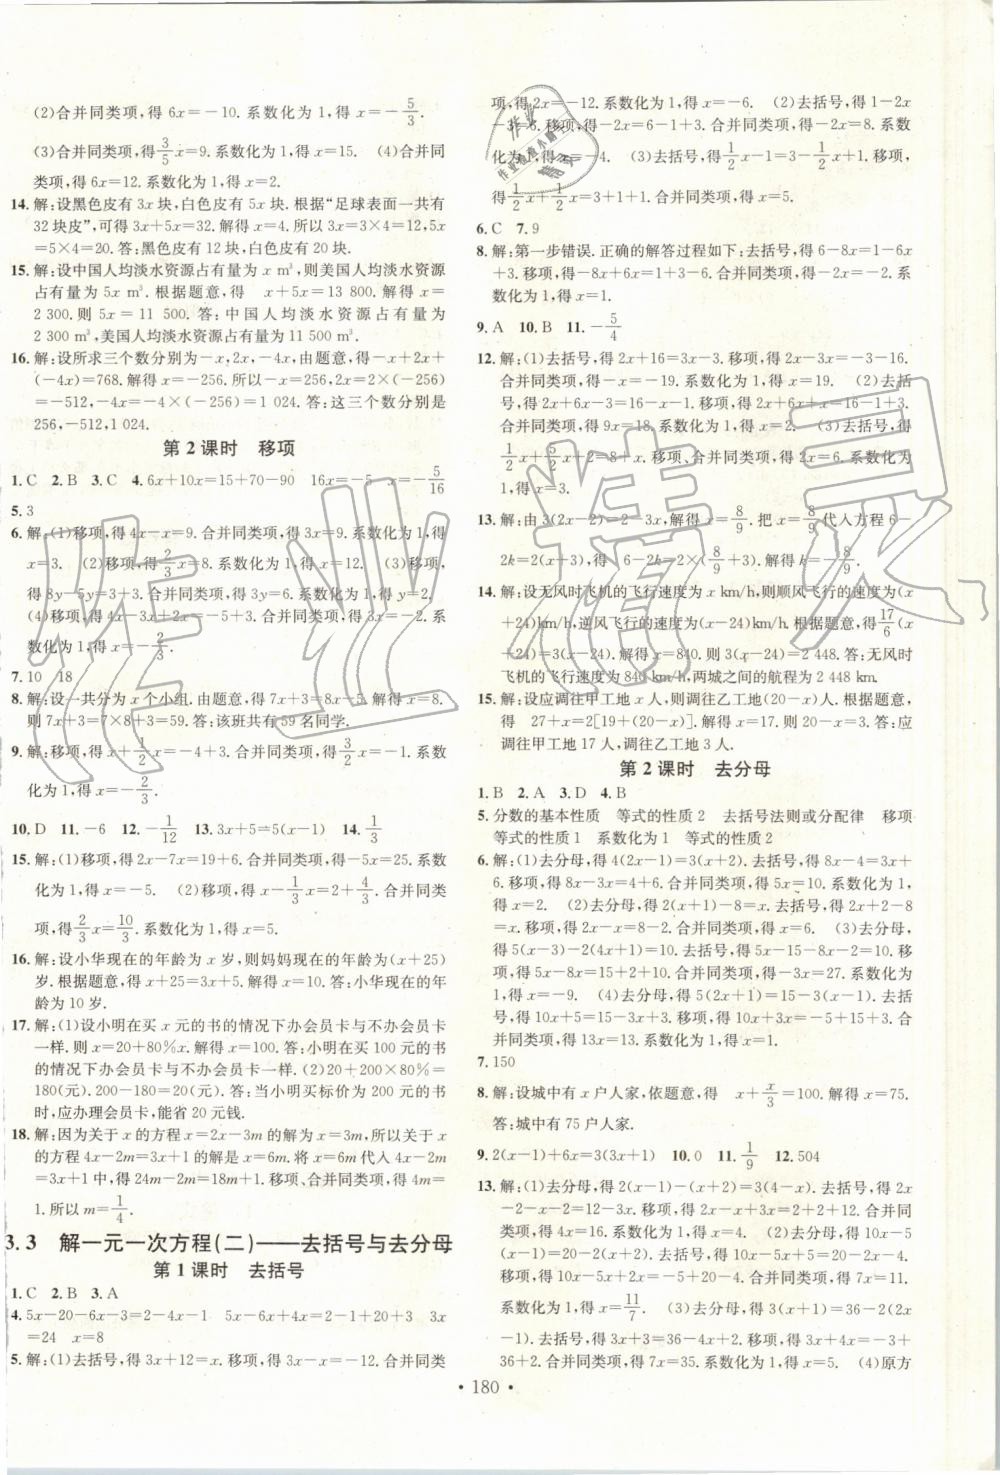 (2)合并同类项,得 6x=-10. 系数化为 1,得 x=-5/3.
(3)合并同类项,得 3/5 x=9. 系数化为 1,得 x=15. (4)合并同
类项,得 6x=12. 系数化为 1,得 x=2.
14. 解:设黑色皮有 3x 块,白色皮有 5x 块. 根据“足球表面一共有
32 块皮”,可得 3x+5x=32. 解得 x=4. 所以 3x=3×4=12,5x
=5×4=20. 答:黑色皮有 12 块,白色皮有 20 块.
15. 解:设中国人均淡水资源占有量为 x m³,则美国人均淡水资源
占有量为 5x m³. 根据题意,得 x+5x=13 800. 解得 x=
2 300. 则 5x=11 500. 答:中国人均淡水资源占有量为
2 300 m³,美国人均淡水资源占有量为 11 500 m³.
16. 解:设所求三个数分别为-x,2x,-4x,由题意,得-x+2x+
(-4x)=768. 解得 x=-256. 所以-x=256,2x=2×(-256)
=-512,-4x=-4×(-256)=1 024. 答:这三个数分别是
256,-512,1 024.
第 2 课时 移项
1. C 2. B 3. C 4. 6x+10x=15+70-90 16x=-5 x=-5/16
5. 3
6. 解:(1)移项,得 4x-x=9. 合并同类项,得 3x=9. 系数化为 1,得
x=3. (2)移项,得 2/3 x=8. 系数化为 1,得 x=12. (3)移项,
得 8y-5y=3+3. 合并同类项,得 3y=6. 系数化为 1,得 y=2.
(4)移项,得-4x+3x+2x=-5+3. 合并同类项,得 3x=-2. 系
数化为 1,得 x=-2/3.
7. 10 18
8. 解:设一共分为 x 个小组. 由题意,得 7x+3=8x-5. 解得 x=8.
则 7x+3=7×8+3=59. 答:该班共有 59 名同学.
9. 解:移项,得 x+1/2 x=-4+3. 合并同类项,得 3/2 x=-1. 系数
化为 1,得 x=-2/3.
10. D 11. -6 12. -1/12 13. 3x+5=5(x-1) 14. 1/3
15. 解:(1)移项,得 2x-7x=19+6. 合并同类项,得-5x=25. 系数
化为 1,得 x=-5. (2)移项,得 x-1/3 x=2+4/3. 合并同类
项,得 2/3 x=10/3. 系数化为 1,得 x=5.
16. 解:设小华现在的年龄为 x 岁,则妈妈现在的年龄为(x+25)
岁. 根据题意,得 x+25=3x+5. 解得 x=10. 答:小华现在的年
龄为 10 岁.
17. 解:(1)设小明在买 x 元的书的情况下办会员卡与不办会员卡
一样. 则 x=20+80%x. 解得 x=100. 答:小明在买 100 元的书
的情况下办会员卡与不办会员卡一样. (2)20+200×80%=
180(元). 200-180=20(元). 答:当小明买标价为 200 元的书
时,应办理会员卡,能省 20 元钱.
18. 解:因为关于 x 的方程 x=2x-3m 的解为 x=3m,所以关于 x
的方程 4x-2m=3x+1 的解是 x=6m. 将 x=6m 代入 4x-2m=
3x+1 中,得 24m-2m=18m+1. 移项、合并同类项,得 4m=
1. 所以 m=1/4.
3.3 解一元一次方程(二)——去括号与去分母
第 1 课时 去括号
1. C 2. B 3. A
4. 5x-20-6x-3=2-4x-1 5x-6x+4x=2-1+20+3 3x
=24 x=8
5. 解:(1)去括号,得 3x+12=x. 移项,得 3x-x=-12. 合并同类
项,得 2x=-12. 系数化为 1,得 x=-6. (2)去括号,得 1-2x
-3=6. 移项,得-2x=6-1+3. 合并同类项,得-2x=8. 系数
化为 1,得 x=-4. (3)去括号,得 1/2 x-1=3-1/2 x+1. 移项,
得 1/2 x+1/2 x=3+1+1. 合并同类项,得 x=5.
6. C 7. 9
8. 解:第一步错误. 正确的解答过程如下:去括号,得 6-8x=1-6x
+3. 移项,得-8x+6x=1+3-6. 合并同类项,得-2x=-2. 系
数化为 1,得 x=1.
9. A 10. B 11. -5/4
12. 解:(1)去括号,得 2x+16=3x-3. 移项,得 2x-3x=-3-16.
合并同类项,得-x=-19. 系数化为 1,得 x=19. (2)去括
合并同类项,得 9x=18. 系数化为 1,得 x=2. (3)去括号,得
1/2 x+x+5/2 x=8+x. 移项、合并同类项,得 系数化为
1,得 x=
13. 解:由 3(2x-2)=2-3x,解得 x=8/9. 把 x=8/9 代入方程 6-
2k=2(x+3),得 6-2k=2×(8/9+3). 解得 k=-8/9.
14. 解:设无风时飞机的飞行速度为 x km/h,则顺风飞行的速度为(x
+24)km/h,逆风飞行的速度为(x-24)km/h. 根据题意,得 17/6 (x
+24)=3(x-24). 解得 x=840. 则 3(x-24)=2 448. 答:无风时
飞机的飞行速度为 840 km/h,两城之间的航程为 2 448 km.
15. 解:设应调往甲工地 x 人,则调往乙工地(20-x)人. 根据题意,
得 27+x=2[19+(20-x)]. 解得 x=17. 则 20-x=3. 答:应
调往甲工地 17 人,调往乙工地 3 人.
第 2 课时 去分母
1. B 2. A 3. D 4. B
5. 分数的基本性质 等式的性质 2 去括号法则或分配律 移项
等式的性质 1 系数化为 1 等式的性质 2
6. 解:(1)去分母,得 4(2x-1)=3(x+2). 去括号,得 8x-4=3x+
6. 移项,得 8x-3x=4+6. 合并同类项,得 5x=10. 系数化为 1,
得 x=2. (2)去分母,得 2(x+1)-8=x. 去括号,得 2x+2-8=
x. 移项,得 2x-x=8-2. 合并同类项,得 x=6. (3)去分母,
得 5(x-3)-2(4x+1)=10. 去括号,得 5x-15-8x-2=10. 移
项,得 5x-8x=15+2+10. 合并同类项,得-3x=27. 系数化为 1,
得 x=-9. (4)去分母,得 5(2x+1)=15-3(x-1). 去括号,得
10x+5=15-3x+3. 移项,得 10x+3x=-5+15+3. 合并同
类项,得 13x=13. 系数化为 1,得 x=1.
7. 150
8. 解:设城中有 x 户人家,依题意,得 x+x/3=100. 解得 x=75.
答:城中有 75 户人家.
9. 2(x-1)+6x=3(3x+1) 10. 0 11. 1/9 12. 504
13. 解:(1)去分母,得 2(x-1)-(x+2)=3(4-x). 去括号,得
2x-2-x-2=12-3x. 移项,得 2x-x+3x=2+2+12. 合并同
类项,得 4x=16. 系数化为 1,得 x=4. (2)去分母,得
合并同类项,得 7x=11.
系数化为 1,得 x=11/7. (3)去分母,得 3(x+1)=36-2(2x
-1). 去括号,得 移项,得
+36+2. 合并同类项,得 7x=35. 系数化为 1,得 x=5. (4)原方
· 180 ·
作业精灵